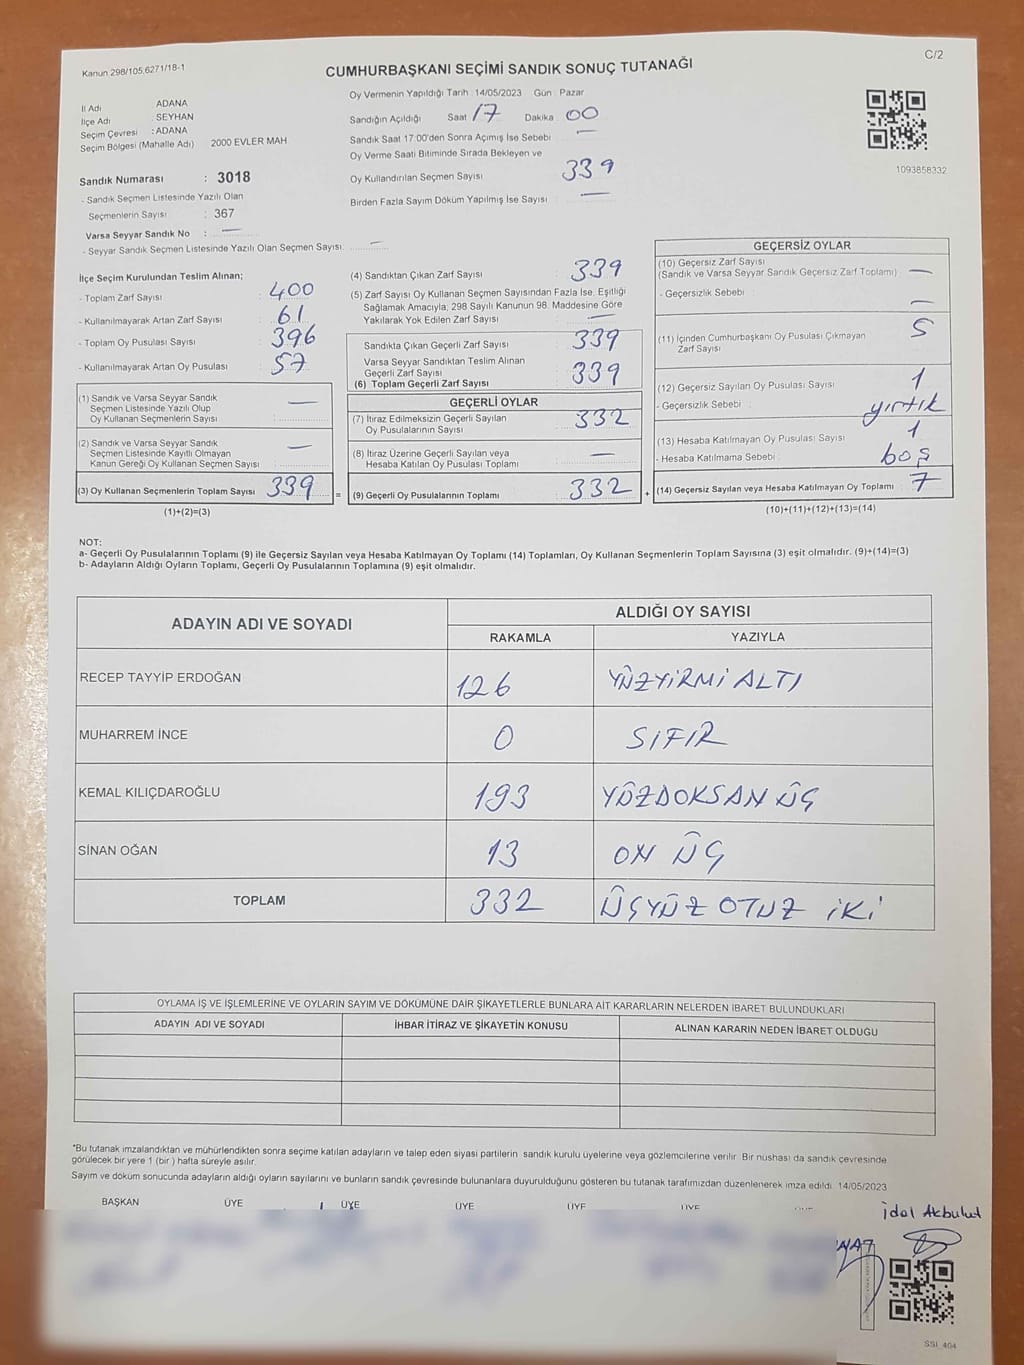 Kanun 298/105,6271/18-1
C/2
CUMHURBAŞKANI SEÇİMİ SANDIK SONUÇ TUTANAĞI
İl Adı ADANA
İlçe Adı : SEYHAN
Seçim Çevresi : ADANA
Seçim Bölgesi (Mahalle Adı) 2000 EVLER MAH
Sandık Numarası : 3018
- Sandık Seçmen Listesinde Yazılı Olan
Seçmenlerin Sayısı : 367
Varsa Seyyar Sandık No : —
- Seyyar Sandık Seçmen Listesinde Yazılı Olan Seçmen Sayısı: —
Oy Vermenin Yapıldığı Tarih : 14/05/2023 Gün : Pazar
Sandığın Açıldığı Saat 17 Dakika 00
Sandık Saat 17:00'den Sonra Açımış İse Sebebi —
Oy Verme Saati Bitiminde Sırada Bekleyen ve
Oy Kullandırılan Seçmen Sayısı 339
Birden Fazla Sayım Döküm Yapılmış İse Sayısı —
1093858332
İlçe Seçim Kurulundan Teslim Alınan;
- Toplam Zarf Sayısı : 400
- Kullanılmayarak Artan Zarf Sayısı : 61
- Toplam Oy Pusulası Sayısı : 396
- Kullanılmayarak Artan Oy Pusulası : 57
(1) Sandık ve Varsa Seyyar Sandık
Seçmen Listesinde Yazılı Olup
Oy Kullanan Seçmenlerin Sayısı : —
(2) Sandık ve Varsa Seyyar Sandık
Seçmen Listesinde Kayıtlı Olmayan
Kanun Gereği Oy Kullanan Seçmen Sayısı : —
(3) Oy Kullanan Seçmenlerin Toplam Sayısı 339 =
(1)+(2)=(3)
(4) Sandıktan Çıkan Zarf Sayısı : 339
(5) Zarf Sayısı Oy Kullanan Seçmen Sayısından Fazla İse, Eşitliği
Sağlamak Amacıyla, 298 Sayılı Kanunun 98. Maddesine Göre
Yakılarak Yok Edilen Zarf Sayısı : —
Sandıkta Çıkan Geçerli Zarf Sayısı : 339
Varsa Seyyar Sandıktan Teslim Alınan
Geçerli Zarf Sayısı
(6) Toplam Geçerli Zarf Sayısı : 339
GEÇERLİ OYLAR
(7) İtiraz Edilmeksizin Geçerli Sayılan
Oy Pusulalarının Sayısı : 332
(8) İtiraz Üzerine Geçerli Sayılan veya
Hesaba Katılan Oy Pusulası Toplamı : —
(9) Geçerli Oy Pusulalarının Toplamı : 332 +
GEÇERSİZ OYLAR
(10) Geçersiz Zarf Sayısı
(Sandık ve Varsa Seyyar Sandık Geçersiz Zarf Toplamı) —
- Geçersizlik Sebebi : —
(11) İçinden Cumhurbaşkanı Oy Pusulası Çıkmayan
Zarf Sayısı 5
(12) Geçersiz Sayılan Oy Pusulası Sayısı 1
- Geçersizlik Sebebi : yırtık
(13) Hesaba Katılmayan Oy Pusulası Sayısı 1
- Hesaba Katılmama Sebebi : boş
(14) Geçersiz Sayılan veya Hesaba Katılmayan Oy Toplamı : 7
(10)+(11)+(12)+(13)=(14)
NOT:
a- Geçerli Oy Pusulalarının Toplamı (9) ile Geçersiz Sayılan veya Hesaba Katılmayan Oy Toplamı (14) Toplamları, Oy Kullanan Seçmenlerin Toplam Sayısına (3) eşit olmalıdır. (9)+(14)=(3)
b- Adayların Aldığı Oyların Toplamı, Geçerli Oy Pusulalarının Toplamına (9) eşit olmalıdır.
ADAYIN ADI VE SOYADI ALDIĞI OY SAYISI
RAKAMLA YAZIYLA
RECEP TAYYİP ERDOĞAN 126 YÜZYİRMİ ALTI
MUHARREM İNCE 0 SIFIR
KEMAL KILIÇDAROĞLU 193 YÜZDOKSAN ÜÇ
SİNAN OĞAN 13 ON ÜÇ
TOPLAM 332 ÜÇYÜZ OTUZ İKİ
OYLAMA İŞ VE İŞLEMLERİNE VE OYLARIN SAYIM VE DÖKÜMÜNE DAİR ŞİKAYETLERLE BUNLARA AİT KARARLARIN NELERDEN İBARET BULUNDUKLARI
ADAYIN ADI VE SOYADI İHBAR İTİRAZ VE ŞİKAYETİN KONUSU ALINAN KARARIN NEDEN İBARET OLDUĞU
*Bu tutanak imzalandıktan ve mühürlendikten sonra seçime katılan adayların ve talep eden siyasi partilerin sandık kurulu üyelerine veya gözlemcilerine verilir. Bir nüshası da sandık çevresinde
görülecek bir yere 1 (bir ) hafta süreyle asılır.
Sayım ve döküm sonucunda adayların aldığı oyların sayılarını ve bunların sandık çevresinde bulunanlara duyurulduğunu gösteren bu tutanak tarafımızdan düzenlenerek imza edildi. 14/05/2023
BAŞKAN ÜYE ÜYE ÜYE ÜYE ÜYE
İdal Akbulut
SSI_404